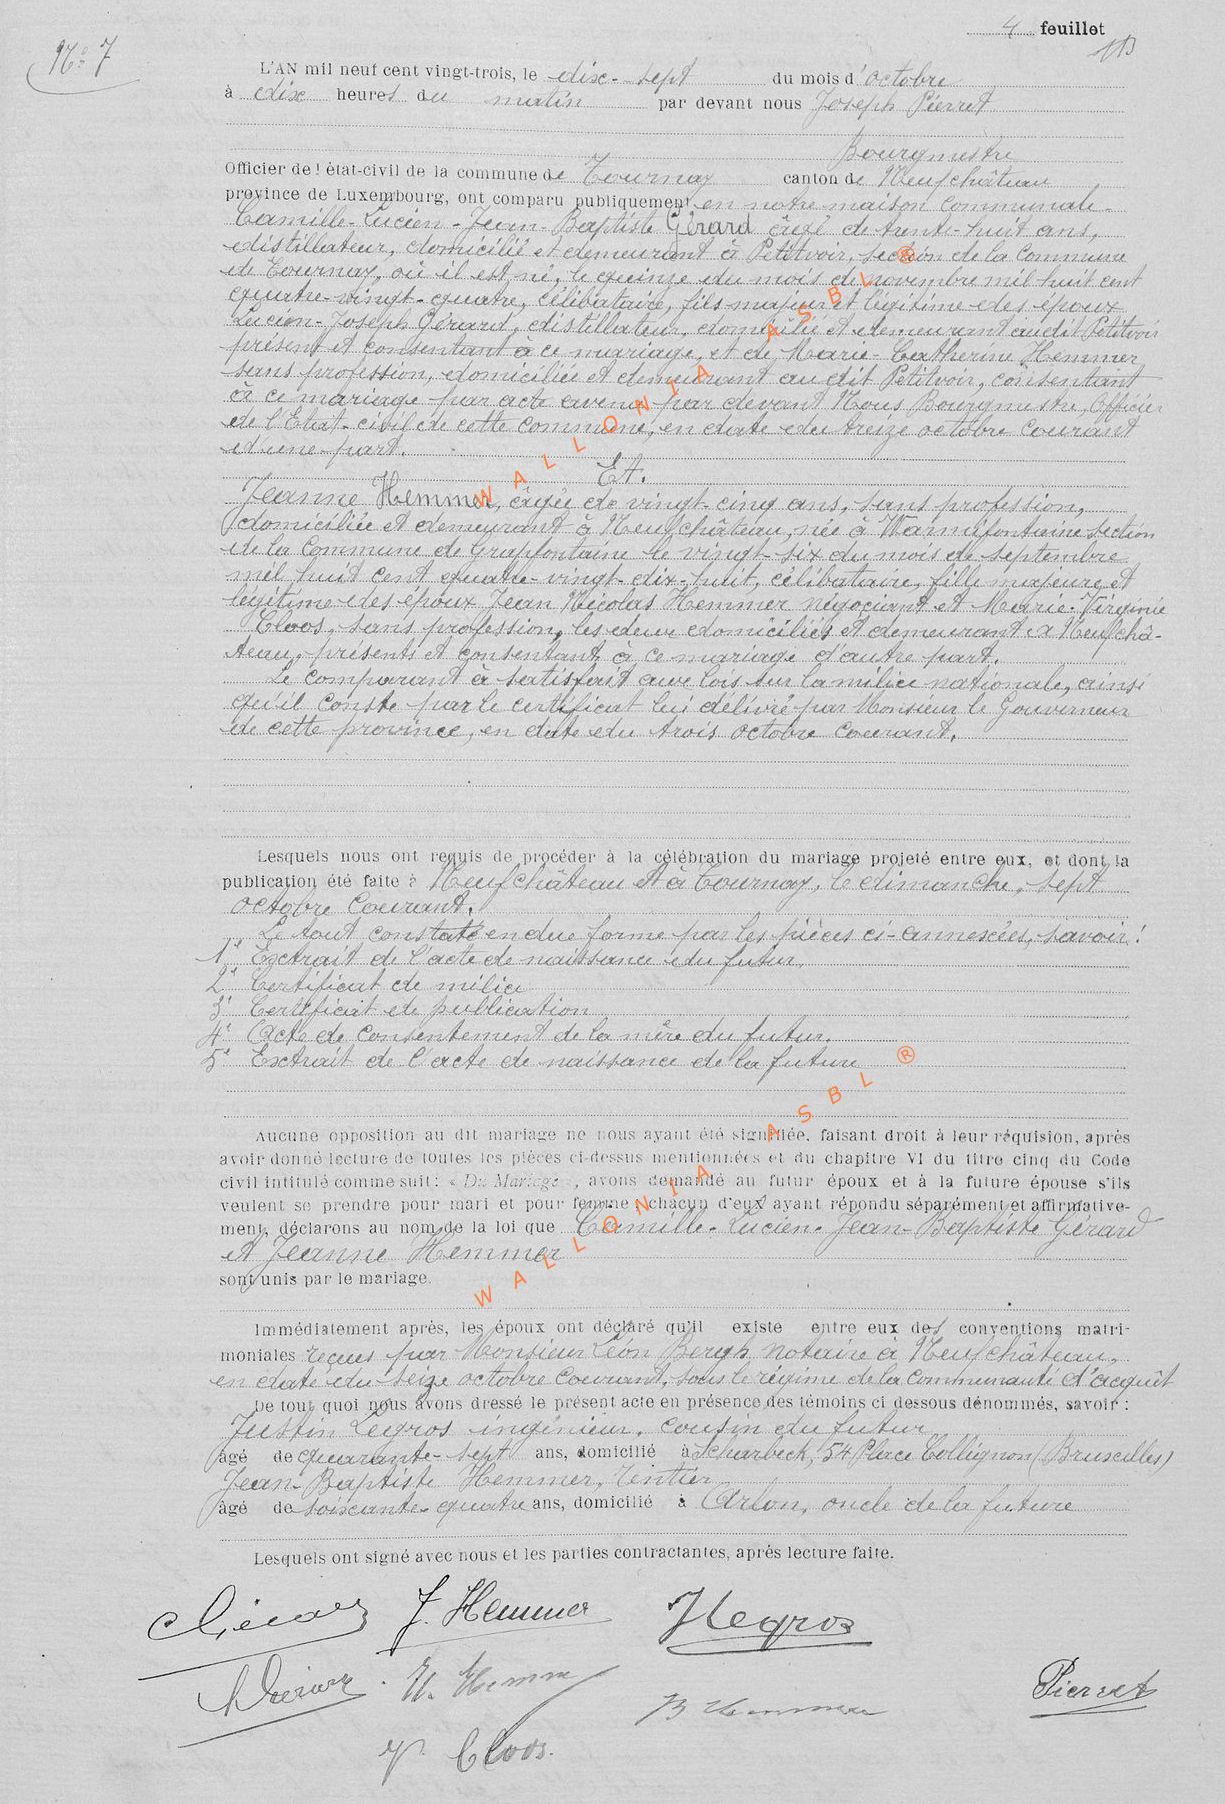 4 feuillet
N° 7
L'AN mil neuf cent vingt-trois, le dix-sept du mois d'octobre
à dix heures du matin par devant nous Joseph Pierret
Bourgmestre
Officier de l'état-civil de la commune de Tournay canton de Neufchâteau
province de Luxembourg, ont comparu publiquement en notre maison communale
Camille-Lucien-Jean-Baptiste Gérard âgé de trente-huit ans,
distillateur, domicilié et demeurant à Petitvoir, section de la Commune
de Tournay, où il est né, le quinze du mois de novembre mil huit cent
quatre-vingt-quatre, célibataire, fils majeur et légitime des époux
Lucien-Joseph Gérard, distillateur, domicilié et demeurant audit Petitvoir
présent et consentant à ce mariage, et de Marie-Catherine Hemmer
sans profession, domiciliée et demeurant au dit Petitvoir, consentant
à ce mariage par acte avenu par devant Nous Bourgmestre, Officier
de l'Etat-civil de cette commune, en date du treize octobre courant
d'une part.
Et.
Jeanne Hemmer, âgée de vingt-cinq ans, sans profession,
domiciliée et demeurant à Neufchâteau, née à Warmifontaine section
de la Commune de Grapfontaine le vingt-six du mois de septembre
mil huit cent quatre-vingt-dix-huit, célibataire, fille majeure et
légitime des époux Jean Nicolas Hemmer négociant et Marie-Virginie
Cloos, sans profession, les deux domiciliés et demeurant à Neufchâ-
teau, présents et consentant à ce mariage d'autre part.
Le comparant à satisfait aux lois sur la milice nationale, ainsi
qu'il conste par le certificat lui délivré par Monsieur le Gouverneur
de cette province, en date du trois octobre courant.
Lesquels nous ont requis de procéder à la célébration du mariage projeté entre eux, et dont la
publication été faite à Neufchâteau et à Tournay, le dimanche, sept
octobre courant.
Le tout constaté en due forme par les pièces ci-annexées, savoir:
1° Extrait de l'acte de naissance du futur.
2° Certificat de milice
3° Certificat de publication
4° Acte de consentement de la mère du futur.
5° Extrait de l'acte de naissance de la future
Aucune opposition au dit mariage ne nous ayant été signifiée, faisant droit à leur réquision, après
avoir donné lecture de toutes les pièces ci-dessus mentionnées et du chapitre VI du titre cinq du Code
civil intitulé comme suit: « Du Mariage », avons demandé au futur époux et à la future épouse s'ils
veulent se prendre pour mari et pour femme chacun d'eux ayant répondu séparément et affirmative-
ment, déclarons au nom de la loi que Camille-Lucien-Jean-Baptiste Gérard
et Jeanne Hemmer
sont unis par le mariage.
Immédiatement après, les époux ont déclaré qu'il existe entre eux des conventions matri-
moniales reçues par Monsieur Léon Bergh notaire à Neufchâteau,
en date du seize octobre courant, sous le régime de la communauté d'acquêt
De tout quoi nous avons dressé le présent acte en présence des témoins ci dessous dénommés, savoir:
Justin Legros ingénieur, cousin du futur
âgé de quarante-sept ans, domicilié à Scharbeck, 54 Place Collignon (Bruxelles)
Jean-Baptiste Hemmer, rentier
âgé de soixante-quatre ans, domicilié à Arlon, oncle de la future
Lesquels ont signé avec nous et les parties contractantes, après lecture faite.
J. Hemmer
JLegros
N. Hemmer
B Hemmer
Pierret
V. Cloos.
WALLONIA ASBL ®
WALLONIA ASBL ®